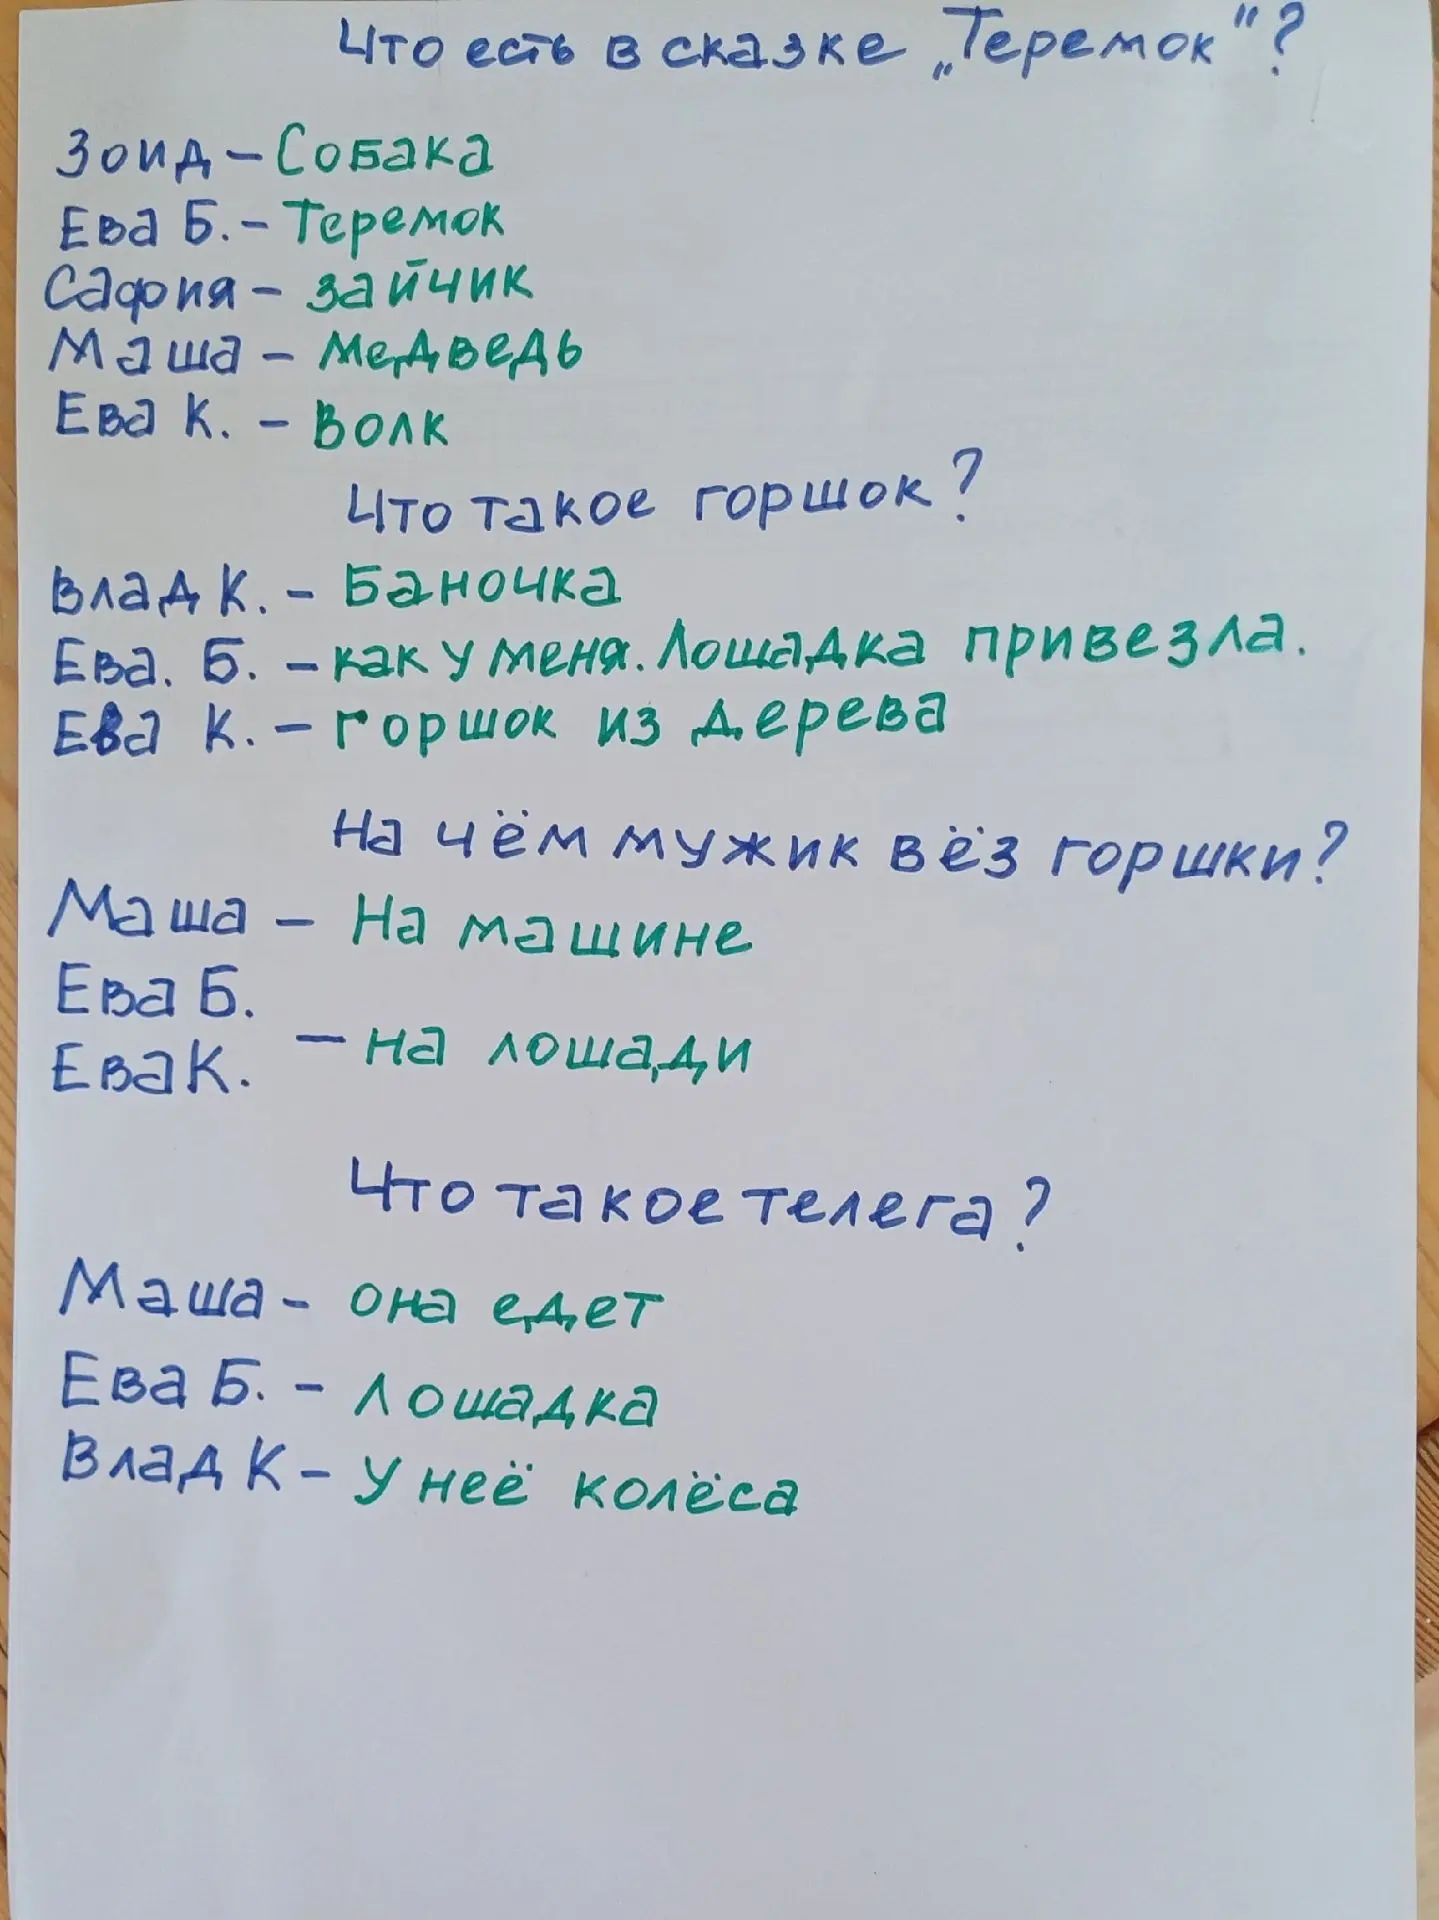 Что есть в сказке „Теремок“?
Зоид – Собака
Ева Б. – Теремок
Сафия – зайчик
Маша – медведь
Ева К. – волк
Что такое горшок?
Влад К. – Баночка
Ева. Б. – как у меня. Лошадка привезла.
Ева К. – горшок из дерева
На чём мужик вёз горшки?
Маша – На машине
Ева Б.
– на лошади
Ева К.
Что такое телега?
Маша – она едет
Ева Б. – лошадка
Влад К – У неё колёса